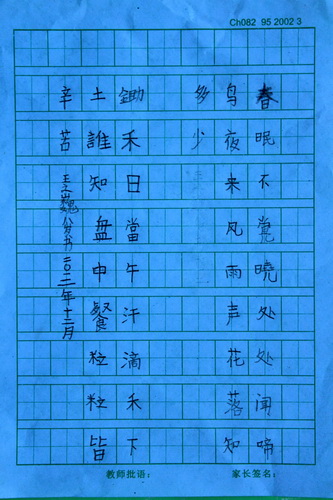 Ch082 95 2002 3
春眠不觉曉处处闻啼
鸟夜来风雨声花落知
多少
鋤禾日當午汗滴禾下
土誰知盘中餐粒粒皆
辛苦
年十二月
教师批语：
家长签名：